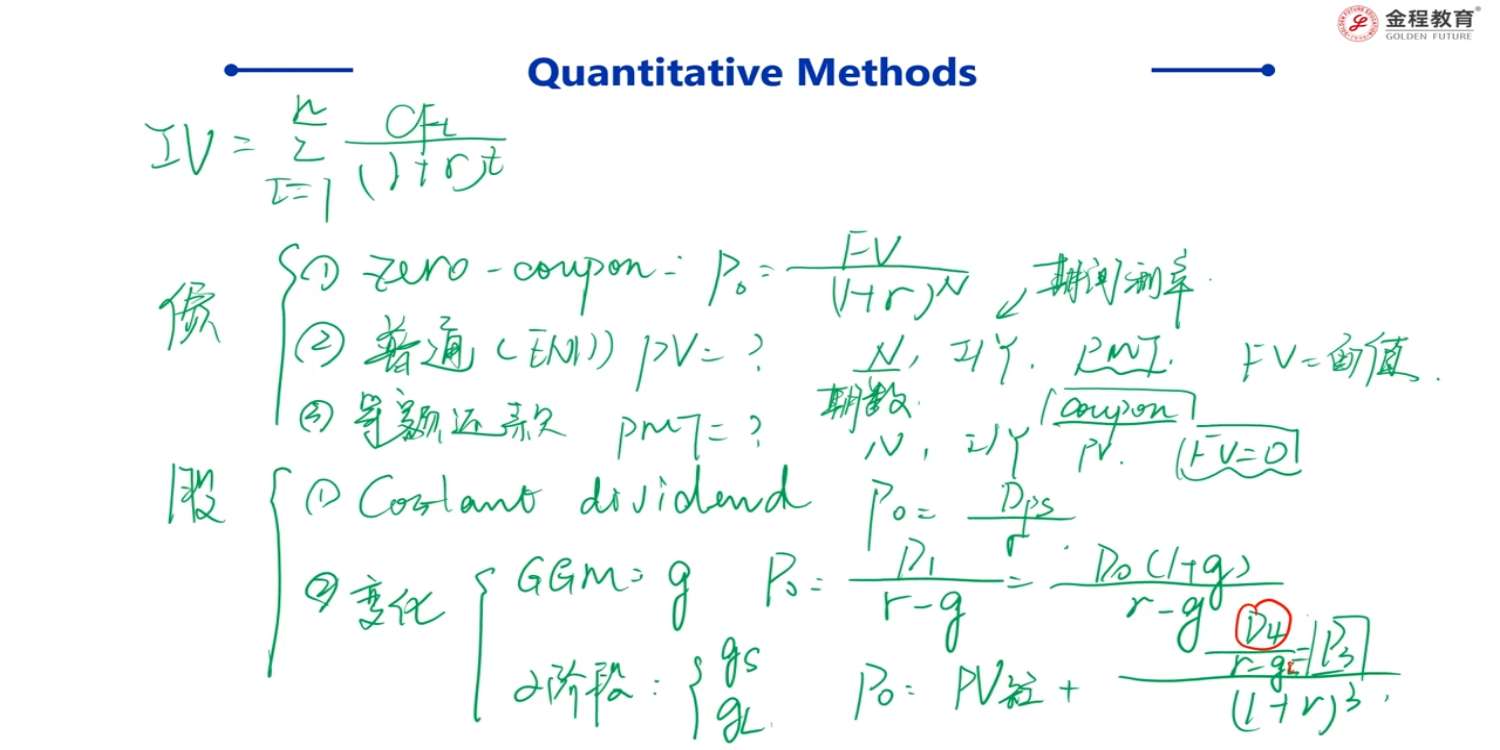 金程教育
GOLDEN FUTURE
Quantitative Methods
IV = Σ_{t=1}^{n} CFt / (1+r)^t
债
① zero-coupon: P₀ = FV / (1+r)^N
期间利率
② 普通 (END) PV = ? N, I/Y, PMT. FV = 面值.
期数. coupon
③ 等额还款 PMT = ? N, I/Y PV. FV=0
股
① Costant dividend P₀ = Dps / r.
② 变化
GGM: g P₀ = D₁ / (r-g) = D₀(1+g) / (r-g)
2阶段: { gS gL. P₀ = PV + (D₄ / (r-gL) = P₃) / (1+r)³.